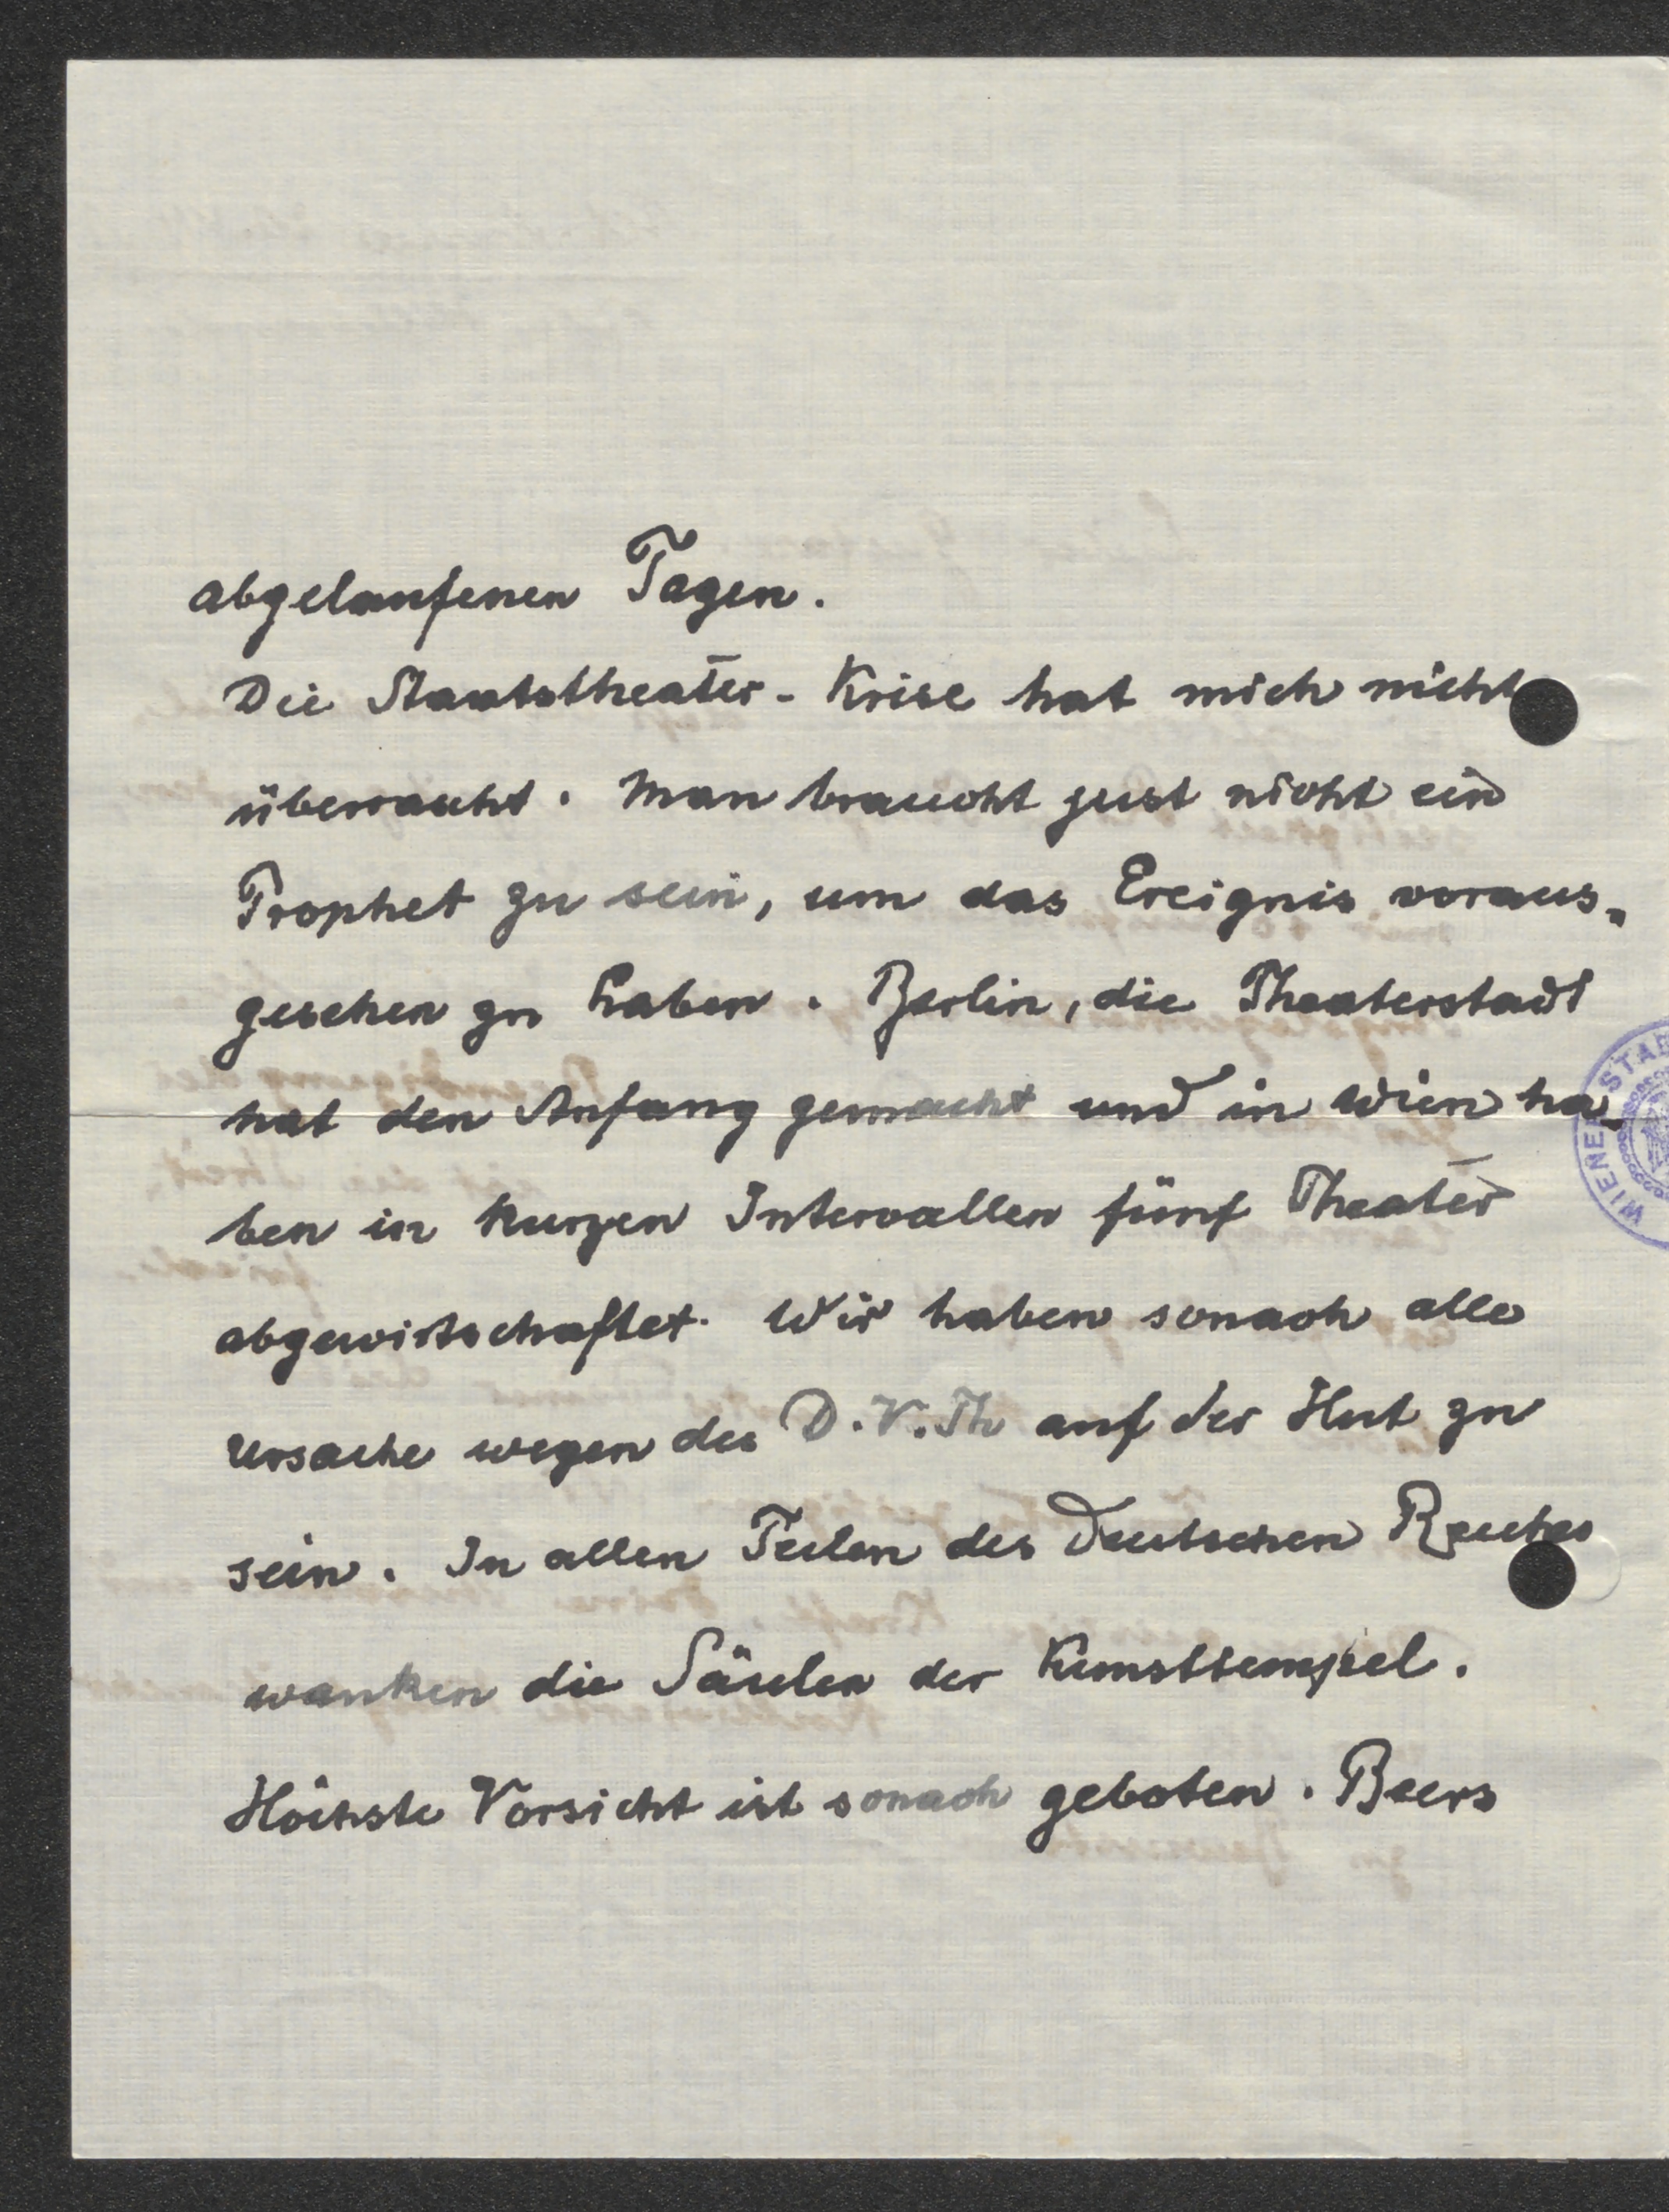 abgelaufenen Tagen.
Die Staatstheater-Krise hat mich nicht
überrascht. Man braucht just nicht ein
Prophet zu sein, um das Ereignis voraus-
gesehen zu haben. Berlin, die Theaterstadt
hat den Anfang gemacht und in Wien ha-
ben in kurzen Intervallen fünf Theater
abgewirtschaftet. Wir haben sonach alle
Ursache wegen des D.V.Th auf der Hut zu
sein. In allen Teilen des Deutschen Reiches
wanken die Säulen der Kunsttempel.
Höchste Vorsicht ist sonach geboten. Beers
WIENER STAD